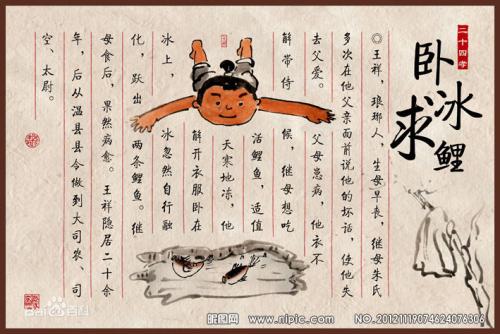 二十四孝
卧冰求鲤
◎王祥，琅琊人，生母早丧，继母朱氏
多次在他父亲面前说他的坏话，使他失
去父爱。父母患病，他衣不
解带侍候，继母想吃
活鲤鱼，适值
天寒地冻，他
解开衣服卧在
冰上，冰忽然自行融
化，跃出两条鲤鱼。继
母食后，果然病愈。王祥隐居二十余
年，后从温县县令做到大司农、司
空、太尉。
Bai百科
昵图网 www.nipic.com NO.20121119074624076306